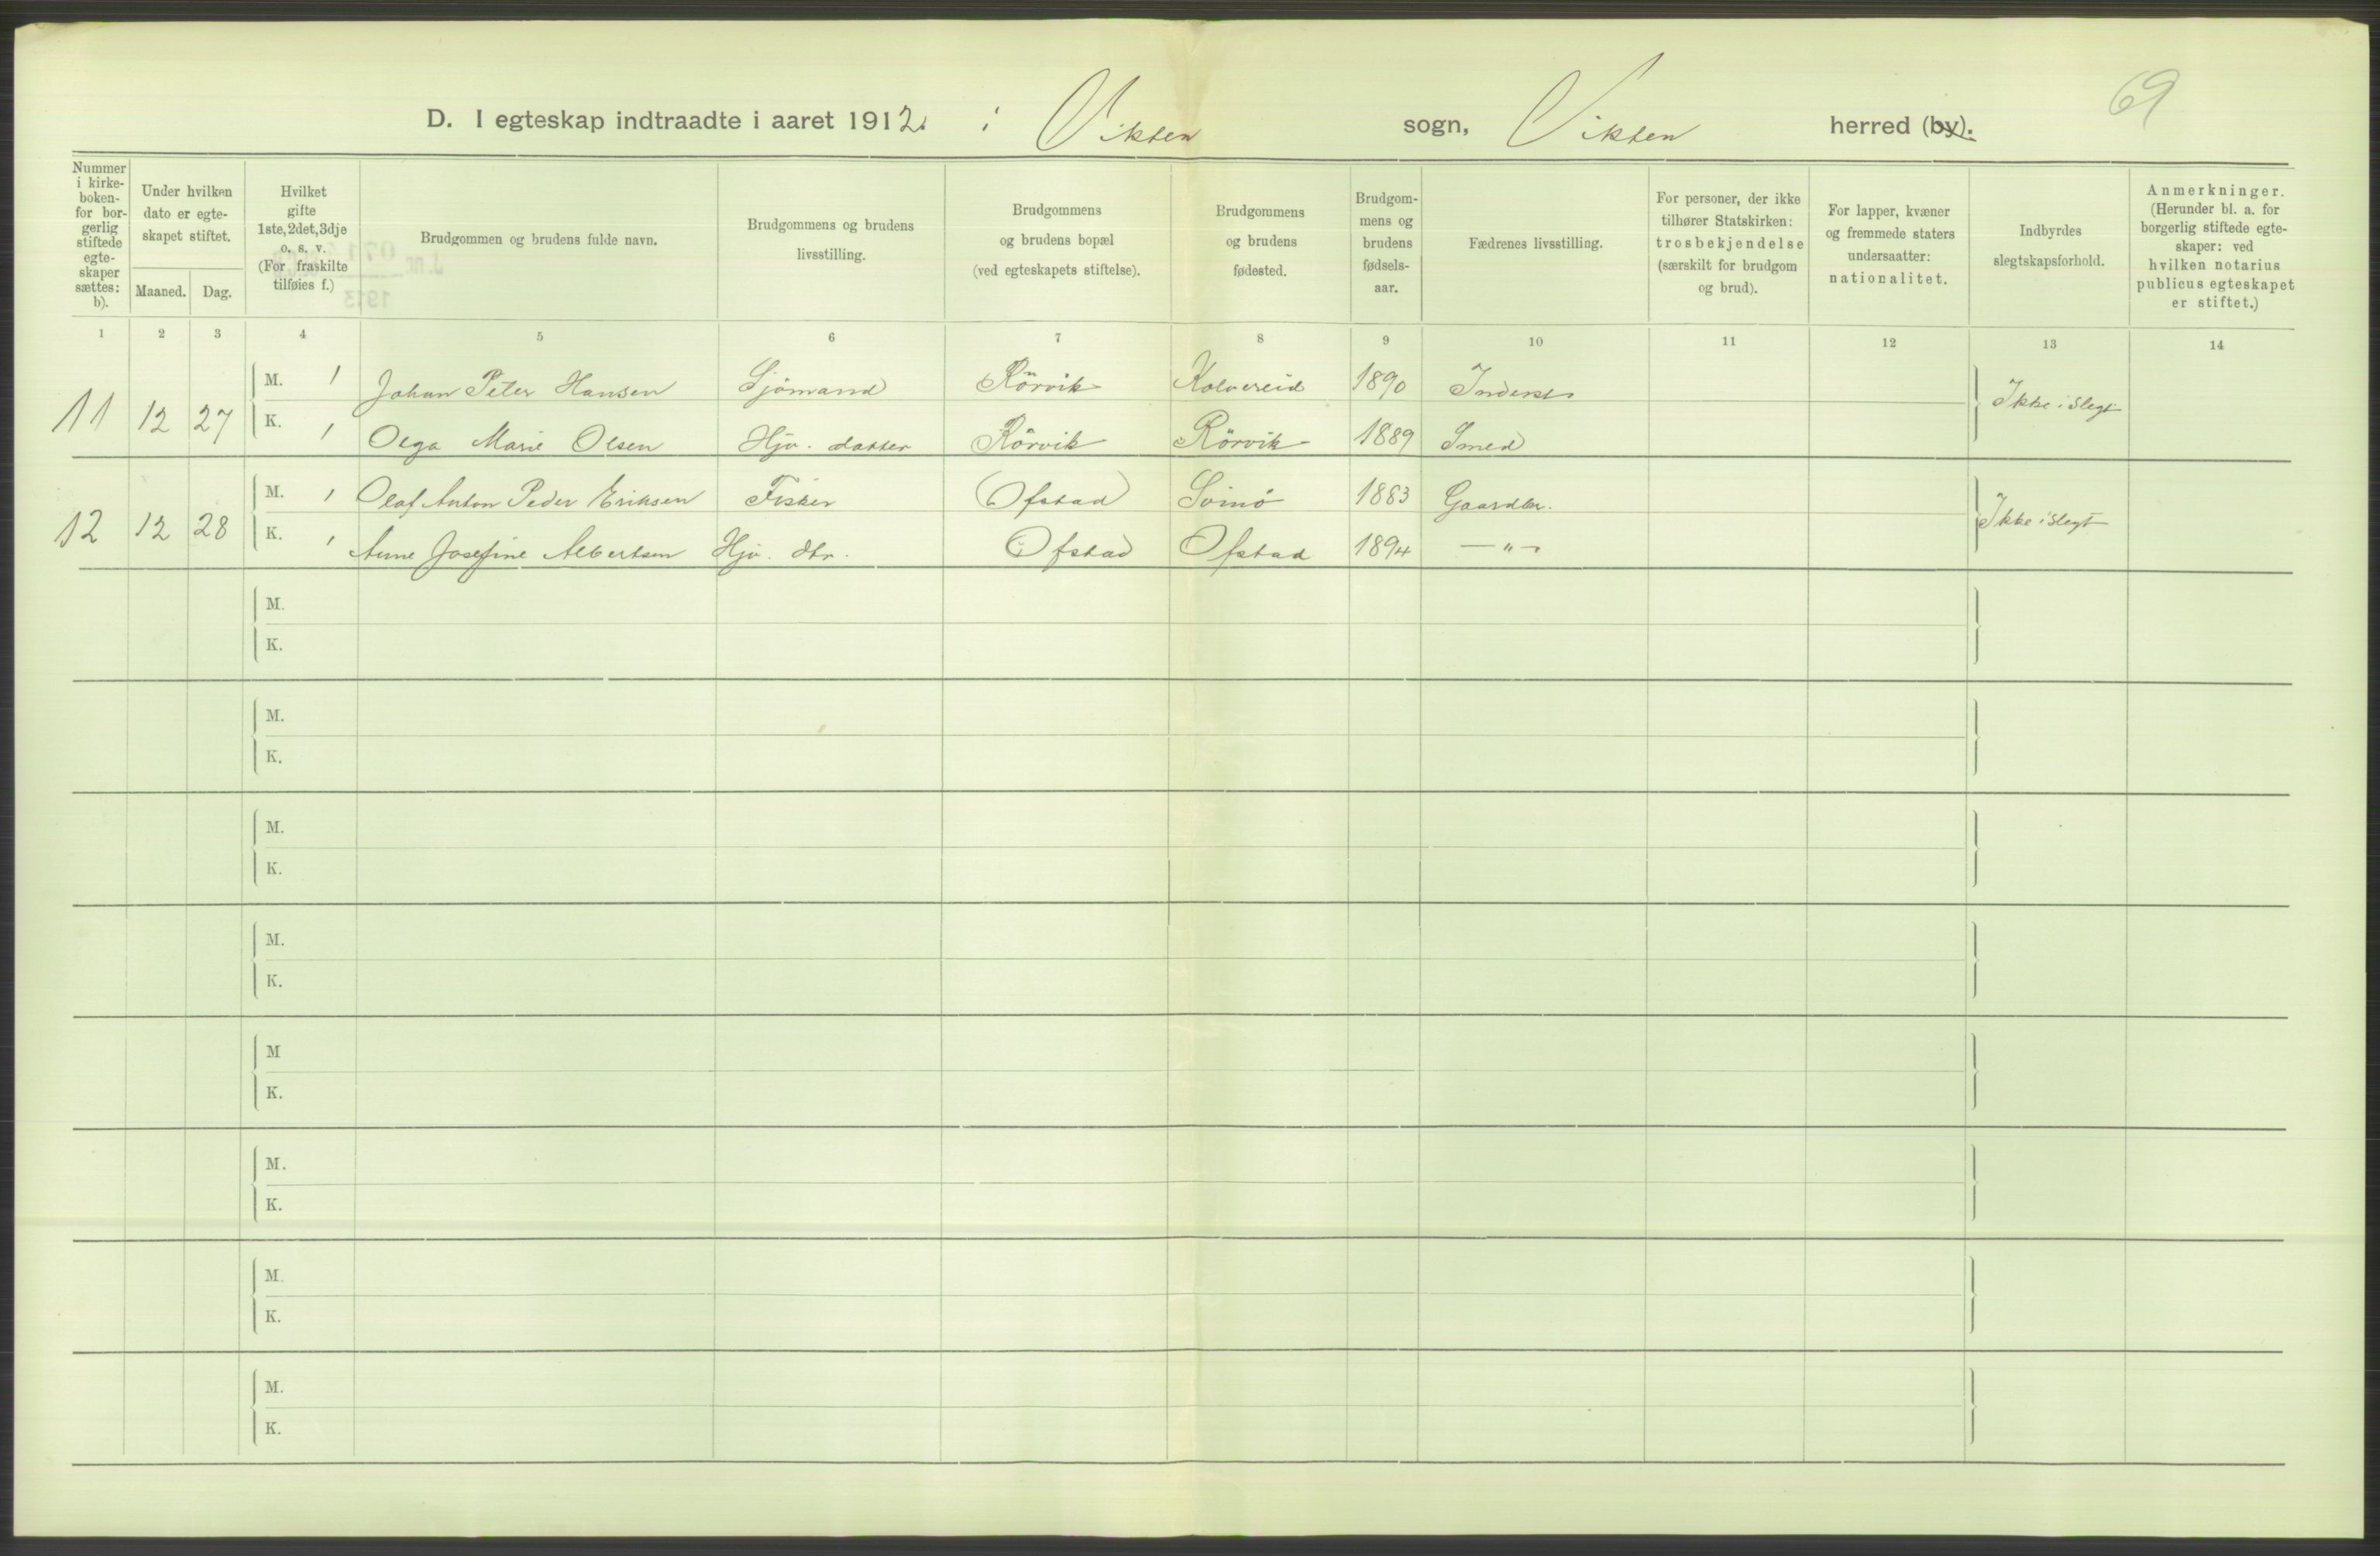 69
D. I egteskap indtraadte i aaret 1912. i Vikten sogn, Vikten herred (by).
Nummer i kirke-boken- for bor-gerlig stiftede egte-skaper sættes: b).
Under hvilken dato er egte-skapet stiftet.
Maaned. Dag.
Hvilket gifte 1ste, 2det, 3dje o. s. v. (For fraskilte tilføies f.)
Brudgommen og brudens fulde navn.
Brudgommens og brudens livsstilling.
Brudgommens og brudens bopæl (ved egteskapets stiftelse).
Brudgommens og brudens fødested.
Brudgom-mens og brudens fødsels-aar.
Fædrenes livsstilling.
For personer, der ikke tilhører Statskirken: trosbekjendelse (særskilt for brudgom og brud).
For lapper, kvæner og fremmede staters undersaatter: nationalitet.
Indbyrdes slegtskapsforhold.
Anmerkninger. (Herunder bl. a. for borgerlig stiftede egte-skaper: ved hvilken notarius publicus egteskapet er stiftet.)
1 2 3 4 5 6 7 8 9 10 11 12 13 14
11 12 27 M. 1 Johan Peter Hansen Sjömand Rörvik Kolvereid 1890 Inderst Ikke i slegt
K. 1 Olga Marie Olsen Hjv. datter Rörvik Rörvik 1889 Smed
12 12 28 M. 1 Olaf Anton Peder Eriksen Fisker Ofstad Svinö 1883 Gaardbr. Ikke i slegt
K. 1 Anne Josefine Albertsen Hjv. dtr. Ofstad Ofstad 1894 — " —
M.
K.
M.
K.
M.
K.
M.
K.
M
K.
M.
K.
M.
K.
M.
K.